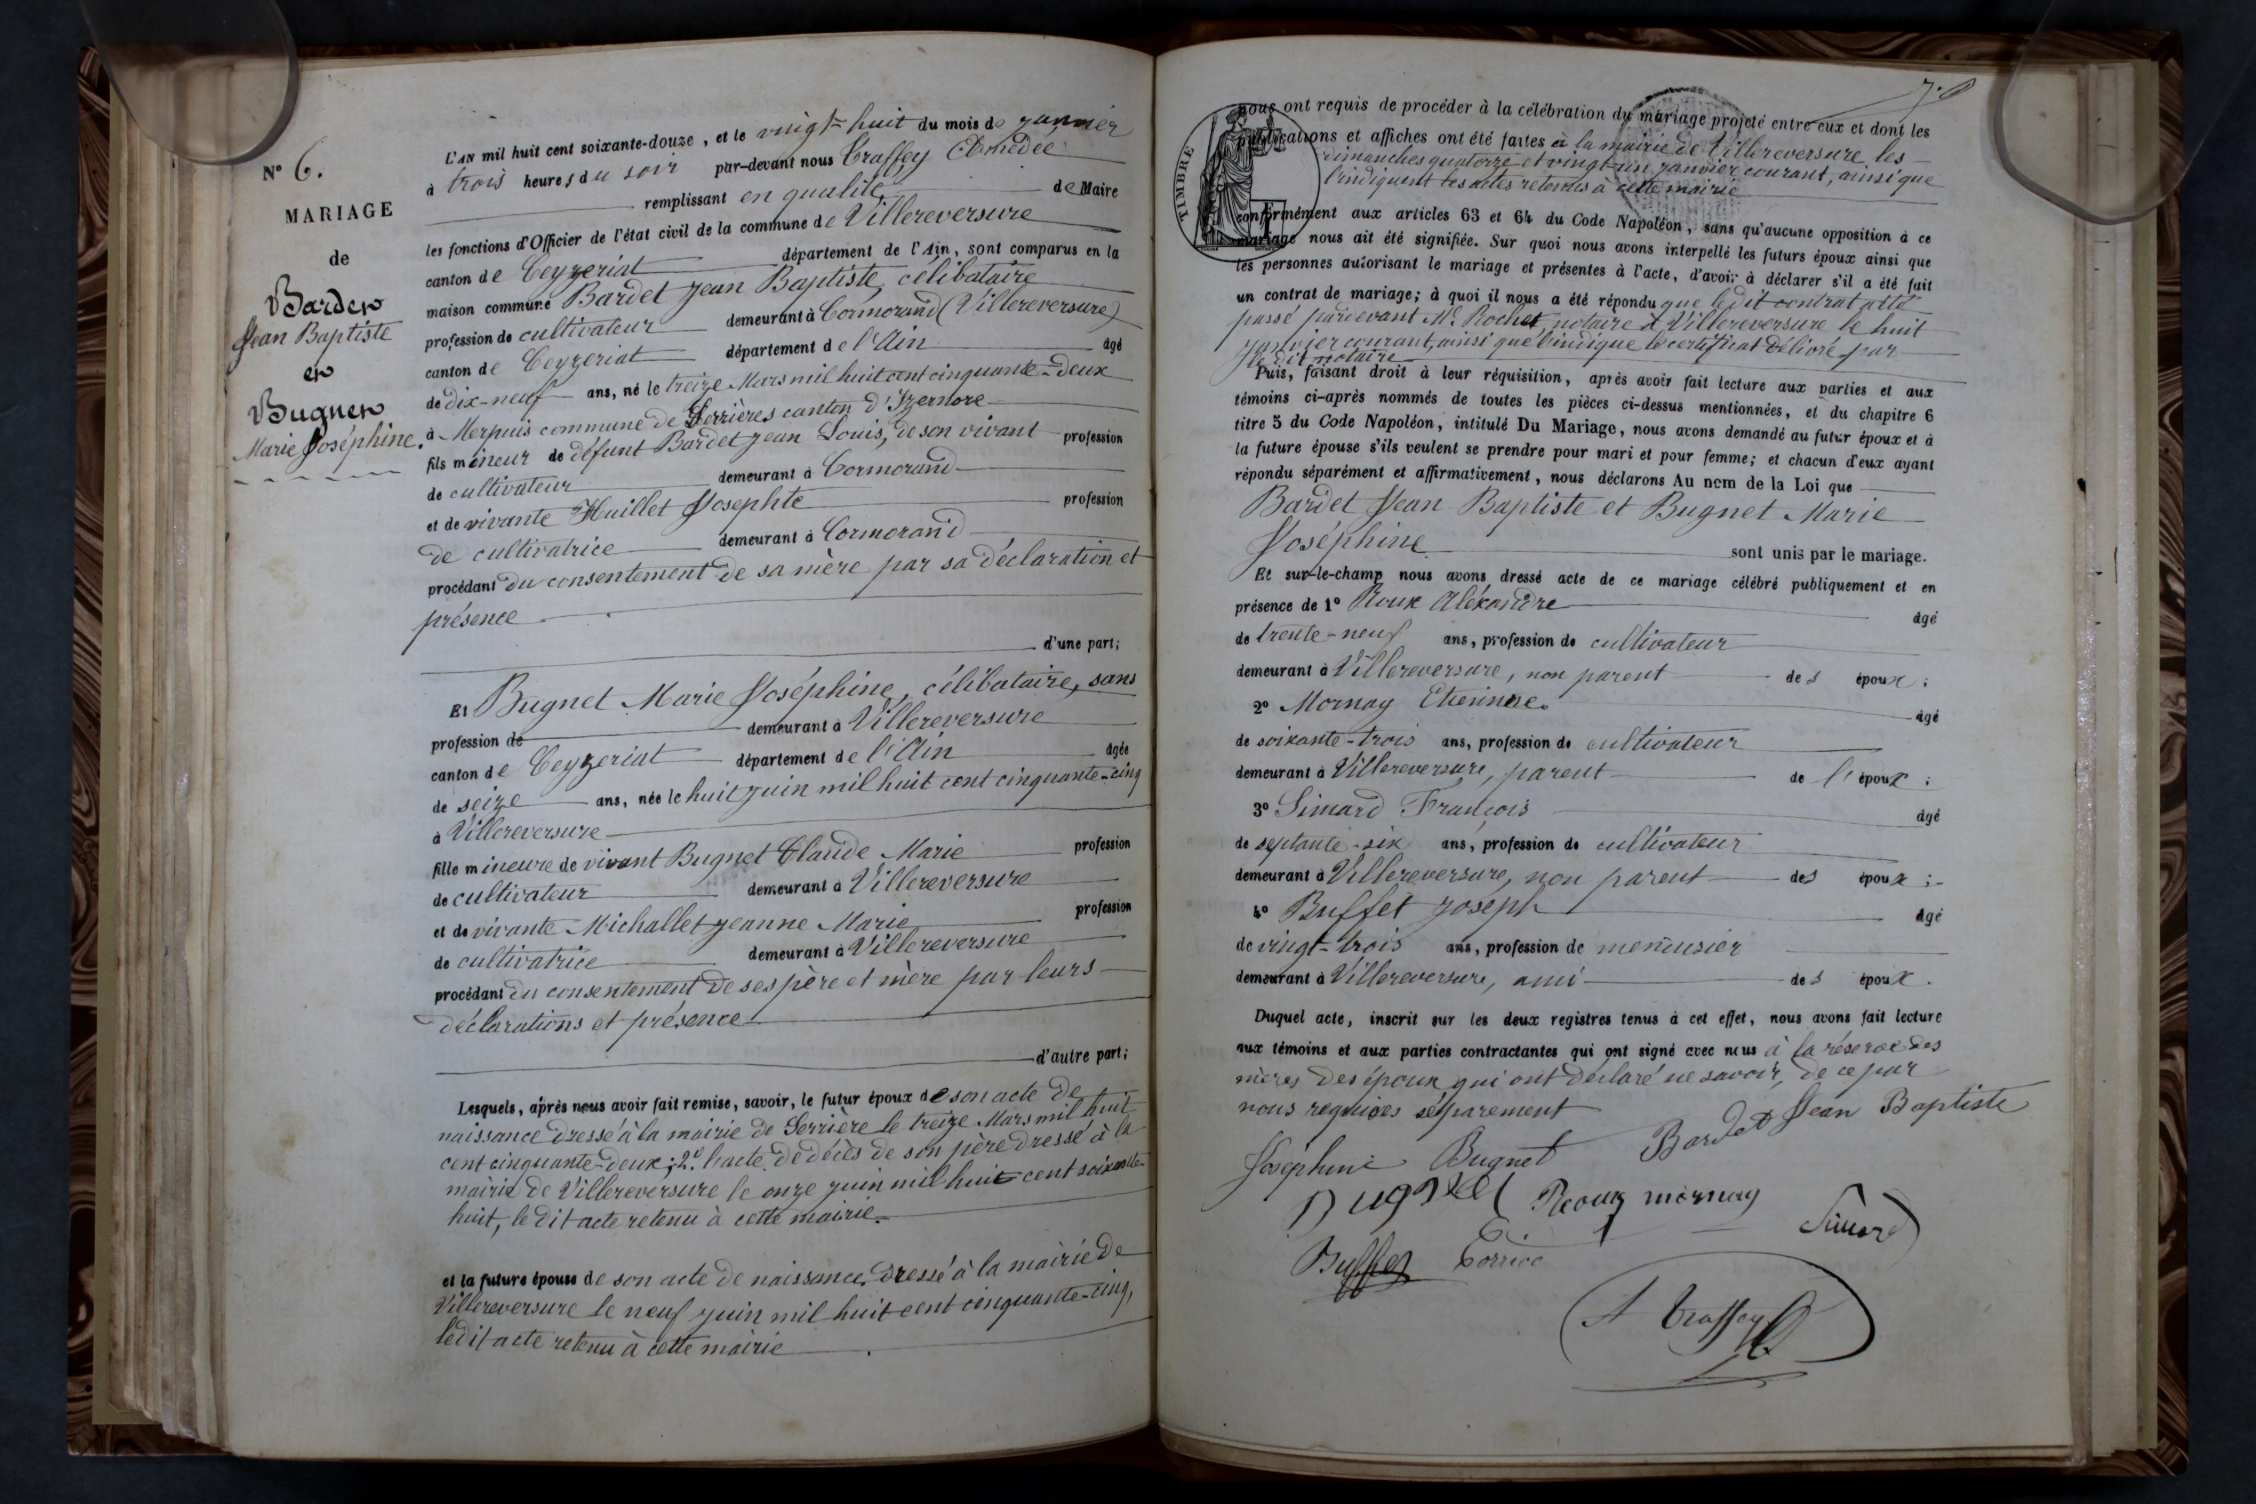 N° 6.
MARIAGE
de
Bardet
Jean Baptiste
et
Bugnet
Marie Joséphine.
L'AN mil huit cent soixante-douze, et le vingt-huit du mois de janvier
à trois heures du soir par-devant nous Traffey Amédée
remplissant en qualité de Maire
les fonctions d'Officier de l'état civil de la commune de Villereversure
canton de Ceyzeriat département de l'Ain, sont comparus en la
maison commune Bardet Jean Baptiste, célibataire
profession de cultivateur demeurant à Cormorand (Villereversure)
canton de Ceyzeriat département de l'Ain âgé
de dix-neuf ans, né le treize Mars mil huit cent cinquante-deux
à Merpuis commune de Serrières canton d'Izernore
fils mineur de défunt Bardet Jean Louis, de son vivant profession
de cultivateur demeurant à Cormorand
et de vivante Huillet Josephte profession
de cultivatrice demeurant à Cormorand
procédant du consentement de sa mère par sa déclaration et
présence
d'une part;
Et Bugnet Marie Joséphine, célibataire, sans
profession de demeurant à Villereversure
canton de Ceyzeriat département de l'Ain âgée
de seize ans, née le huit juin mil huit cent cinquante-cinq
à Villereversure
fille mineure de vivant Bugnet Claude Marie profession
de cultivateur demeurant à Villereversure
et de vivante Michallet Jeanne Marie profession
de cultivatrice demeurant à Villereversure
procédant du consentement de ses père et mère par leurs
déclarations et présence
d'autre part;
Lesquels, après nous avoir fait remise, savoir, le futur époux de son acte de
naissance dressé à la mairie de Serrière le treize Mars mil huit
cent cinquante-deux; 2° l'acte de décès de son père dressé à la
mairie de Villereversure le onze juin mil huit cent soixante-
huit, le dit acte retenu à cette mairie.
et la future épouse de son acte de naissance dressé à la mairie de
Villereversure le neuf juin mil huit cent cinquante-cinq,
ledit acte retenu à cette mairie
TIMBRE
nous ont requis de procéder à la célébration du mariage projeté entre eux et dont les
publications et affiches ont été faites à la mairie de Villereversure, les
dimanches quatorze et vingt-un janvier courant, ainsi que
l'indiquent les actes retenus à cette mairie
conformément aux articles 63 et 64 du Code Napoléon, sans qu'aucune opposition à ce
mariage nous ait été signifiée. Sur quoi nous avons interpellé les futurs époux ainsi que
les personnes autorisant le mariage et présentes à l'acte, d'avoir à déclarer s'il a été fait
un contrat de mariage; à quoi il nous a été répondu que le dit contrat a été
passé pardevant Me Rochet notaire à Villereversure le huit
janvier courant, ainsi que l'indique le certificat délivré par
le dit notaire
Puis, faisant droit à leur réquisition, après avoir fait lecture aux parties et aux
témoins ci-après nommés de toutes les pièces ci-dessus mentionnées, et du chapitre 6
titre 5 du Code Napoléon, intitulé Du Mariage, nous avons demandé au futur époux et à
la future épouse s'ils veulent se prendre pour mari et pour femme; et chacun d'eux ayant
répondu séparément et affirmativement, nous déclarons Au nom de la Loi que
Bardet Jean Baptiste et Bugnet Marie
Joséphine sont unis par le mariage.
Et sur-le-champ nous avons dressé acte de ce mariage célébré publiquement et en
présence de 1° Roux Aléxandre âgé
de trente-neuf ans, profession de cultivateur
demeurant à Villereversure, non parent des époux;
2° Mornay Etienne. âgé
de soixante-trois ans, profession de cultivateur
demeurant à Villereversure, parent de l'époux;
3° Simard François âgé
de septante-six ans, profession de cultivateur
demeurant à Villereversure, non parent des époux;
4° Buffet Joseph âgé
de vingt-trois ans, profession de menuisier
demeurant à Villereversure, ami des époux.
Duquel acte, inscrit sur les deux registres tenus à cet effet, nous avons fait lecture
aux témoins et aux parties contractantes qui ont signé avec nous à la réserve des
mères des époux qui ont déclaré ne savoir, de ce par
nous requises séparement
Bardet Jean Baptiste
Joséphine Bugnet
Bugnet Roux mornay
Simard
Buffet
A Traffey